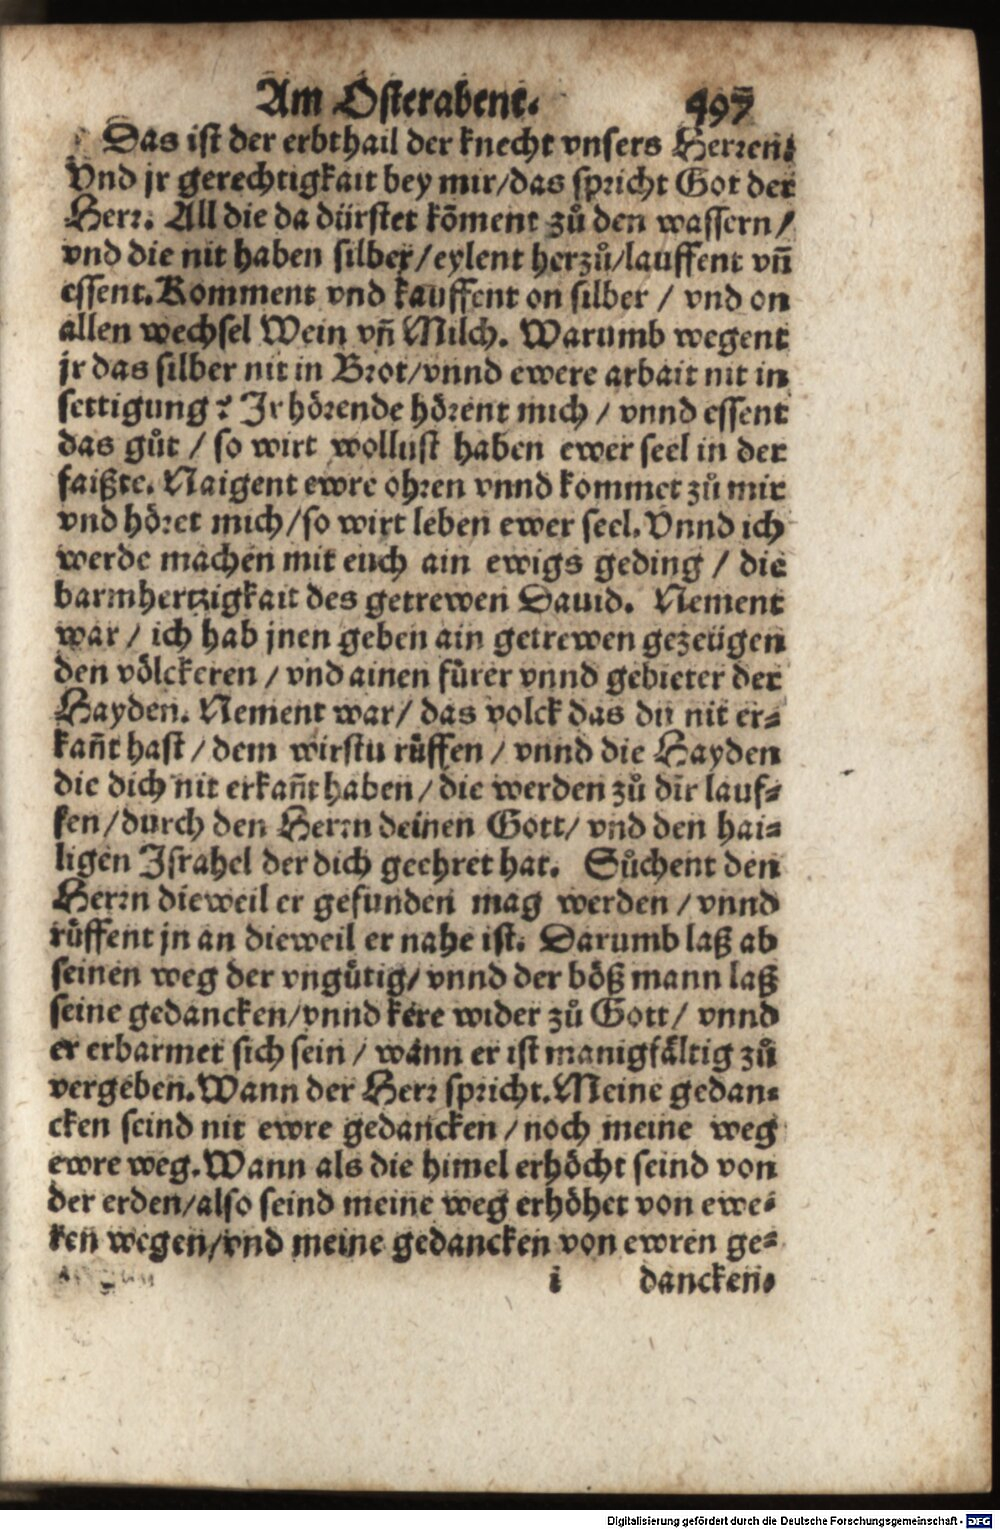 Am Osterabent. 497
Das ist der erbthail der knecht vnsers Herren.
Vnd jr gerechtigkait bey mir/das spricht Got der
Herr. All die da dürstet kōment zů den wassern/
vnd die nit haben silber/eylent herzů/lauffent vñ
essent. Komment vnd kauffent on silber / vnd on
allen wechsel Wein vñ Milch. Warumb wegent
jr das silber nit in Brot/vnnd ewere arbait nit in
settigung? Ir hörende hörent mich / vnnd essent
das gůt / so wirt wollust haben ewer seel in der
faißte. Naigent ewre ohren vnnd kommet zů mir
vnd höret mich/so wirt leben ewer seel. Vnnd ich
werde machen mit euch ain ewigs geding / die
barmhertzigkait des getrewen Dauid. Nement
war / ich hab jnen geben ain getrewen gezeügen
den völckeren / vnd ainen fürer vnnd gebieter der
Hayden. Nement war/ das volck das du nit er-
kañt hast / dem wirstu růffen / vnnd die Hayden
die dich nit erkañt haben / die werden zů dir lauf-
fen/durch den Herrn deinen Gott/ vnd den hai-
ligen Israhel der dich geehret hat. Sůchent den
Herrn dieweil er gefunden mag werden / vnnd
růffent jn an dieweil er nahe ist. Darumb laß ab
seinen weg der vngütig/ vnnd der böß mann laß
seine gedancken/vnnd kere wider zů Gott/ vnnd
er erbarmet sich sein / wann er ist manigfältig zů
vergeben. Wann der Herr spricht. Meine gedan-
cken seind nit ewre gedancken / noch meine weg
ewre weg. Wann als die himel erhöcht seind von
der erden/also seind meine weg erhöhet von ewe-
ren wegen/vnd meine gedancken von ewren ge-
i dancken.
Digitalisierung gefördert durch die Deutsche Forschungsgemeinschaft - DFG